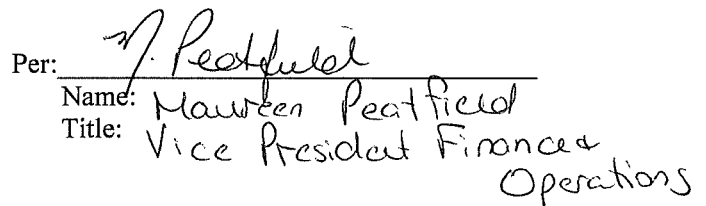 Per: M. Peatfield
Name: Maureen Peatfield
Title: Vice President Finance &
Operations